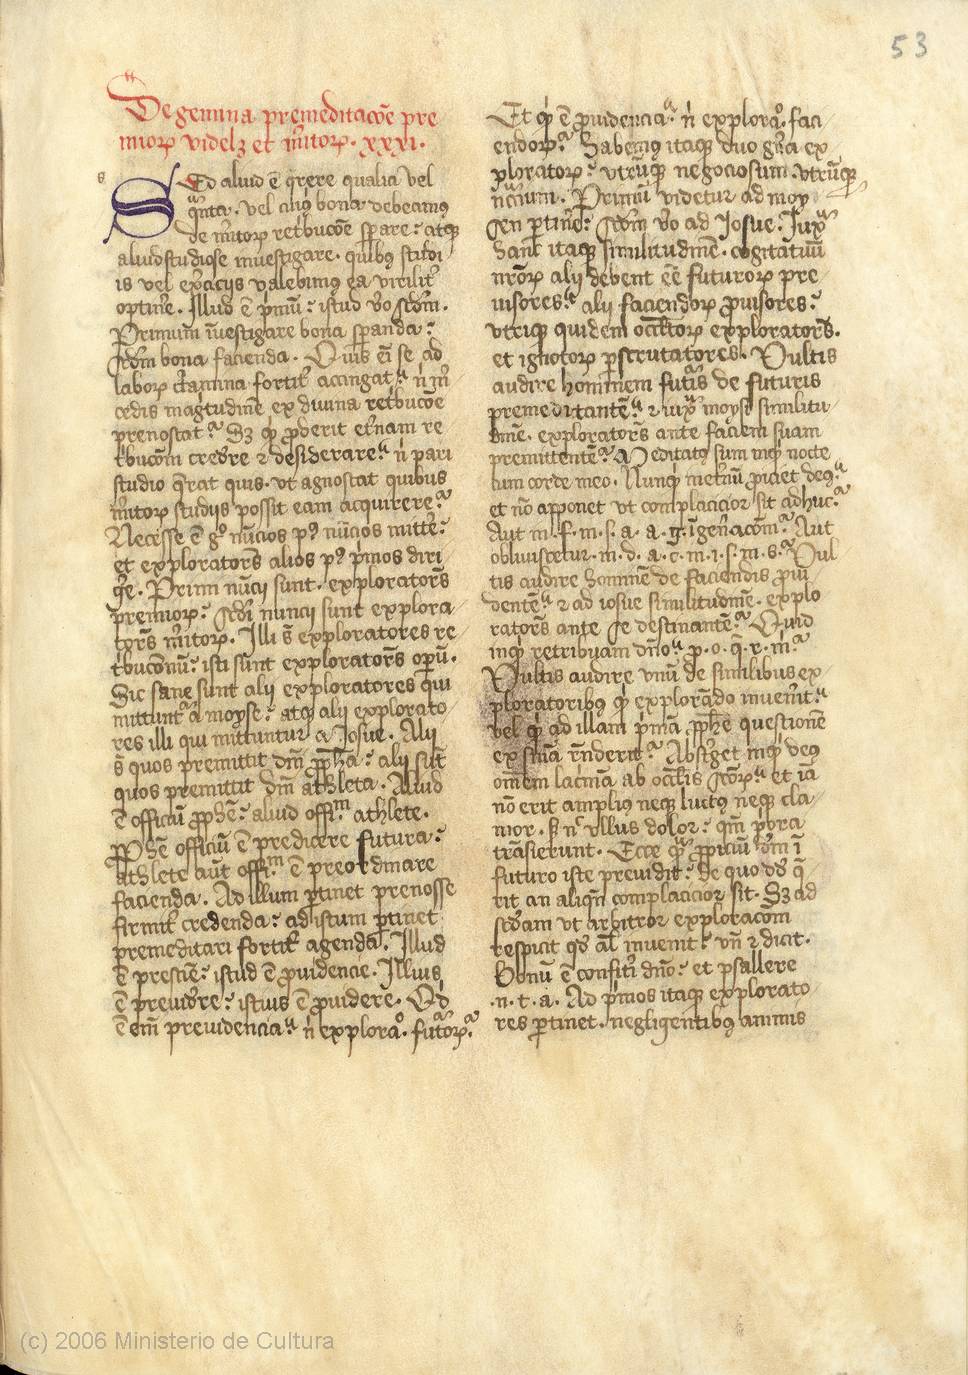 53
De gemina premeditacōe pre
mioꝝ videlꝫ et m̄itoꝝ. xxxi.
s
SEd aliud ē q̄rere qualia vel
q̄nta. vel cuiꝯ bona debeamꝯ
de m̄itoꝝ ret'bucōe sꝑare: atqꝫ
aliud studiose inuestigare. quibꝯ studi
is vel ex̄ciis valebimꝯ ea virilit'
optin̄e. Illud ē p̄miū: istud v̄o scd̄m.
Primum īuestigare bona sꝑanda:
scd̄m bona facienda. Quis em̄ se ad
laboꝝ ctamina fortit' accingat: n̄ m̄
cedis magnitudinē ex diuina ret'bucōe
prenoscat? Sꝫ qͥ ꝓderit et'nam re
t'bucōm cred'e ⁊ desiderare: n̄ pari
studio q̄rat quis. vt agnoscat quibus
m̄itoꝝ studiis possit eam acquirere?
Necesse ē gͦ nūcios pꝯ nūcios mitt'e:
et exploratores alios pꝯ p̄mos diri
g'e. Primi nūcij sunt. exploratores
premioꝝ: scd̄i nuncij sunt explora
tores m̄itoꝝ. Illi sē exploratores re
t'bucōnū: isti sunt exploratores oꝑū.
Sic sane sunt alij exploratores qui
mittunt' a moyse: atqꝫ alij explorato
res illi qui mittuntur a Josue. Alij
sē quos premittit dm̄ ꝓph̄a: alij sūt
quos premittit dm̄ athleta. Aliud
ē officiū ꝓphē: aliud offim athlete.
Ꝓphē officiū ē predicere futura:
athlete aūt offim ē preordinare
facienda. Ad illum ꝑtinet prenosse
firmit' credenda: ad istum ꝑtinet
premeditari fortit' agenda. Illud
ē presciē: istud ē ꝓuidencie. Illius
ē preuid'e: istius ē ꝓuidere. Qd
ē em̄ preuidencia: n̄ exploraͦ. futoꝝ?
Et qͥ ē ꝓuidencia: n̄ exploraͦ. faci
endoꝝ? Habemꝯ itaqꝫ duo gn̄a ex
ploratoꝝ: vtrūqꝫ negociosum. vtrūqꝫ
nc̄c̄ium. Primū videtur ad moy
sen ꝑtin̄e: scd̄m v̄o ad Josue. Juxͣ
hanc itaqꝫ similitudinē. cogitatiuū
nr̄oꝝ alij debent ēe futuroꝝ pre
uisores: alij faciendoꝝ ꝓuisores:
vtriqꝫ quidem occltoꝝ exploratores.
et ignotoꝝ ꝑscrutatores. Vultis
audire hominem fut'is de futuris
premeditantē: ⁊ iuxͣ moysi similitu
dinē. exploratores ante faciem suam
premittentē? Meditatꝯ sum inqͥ nocte
cum corde meo. Nunqͥ inet'nū ꝓiciet deꝯ:
et nō apponet vt complacicior sit adhuc?
Aut m. f. m. s. a. a. g. ī gen'acōm? Aut
obliuiscetur. m. d. a. c. m. i. s. m. s. Vul
tis audire hominē de faciendis ꝓui
dentē: ⁊ ad iosue similitudinē. explo
ratores ante se destinantē? Quid
inqͥ retribuam dn̄o: p. o. q̄. r. m̄?
Vultis audire vnū de similibus ex
ploratoribꝯ qͥ explorādo inuen'it:
vel qͥ ad illam p̄mā ꝓphē questionē
ex sn̄ia rn̄derit? Abst'get inqͥ deꝯ
om̄em lacrimā ab oculis scōꝝ: et iā
nō erit ampliꝯ neqꝫ luctꝯ neqꝫ cla
mor. sꝫ nͨ vllus dolor: qm̄ priora
trāsierunt. Ecce qͣ ꝓpiciū dm̄ ī
futuro iste preuidit: de quo dd' q̄
rit an aliqn̄ complacicior sit. Sꝫ ad
scd̄am vt arbitror exploracōm
respicit qd' al' inuenit: vn̄ ⁊ dicit.
Bonū ē confit'i dn̄o: et psallere
.n. t. a. Ad p̄mos itaqꝫ explorato
res ꝑtinet. negligentibꝯ animis
(c) 2006 Ministerio de Cultura